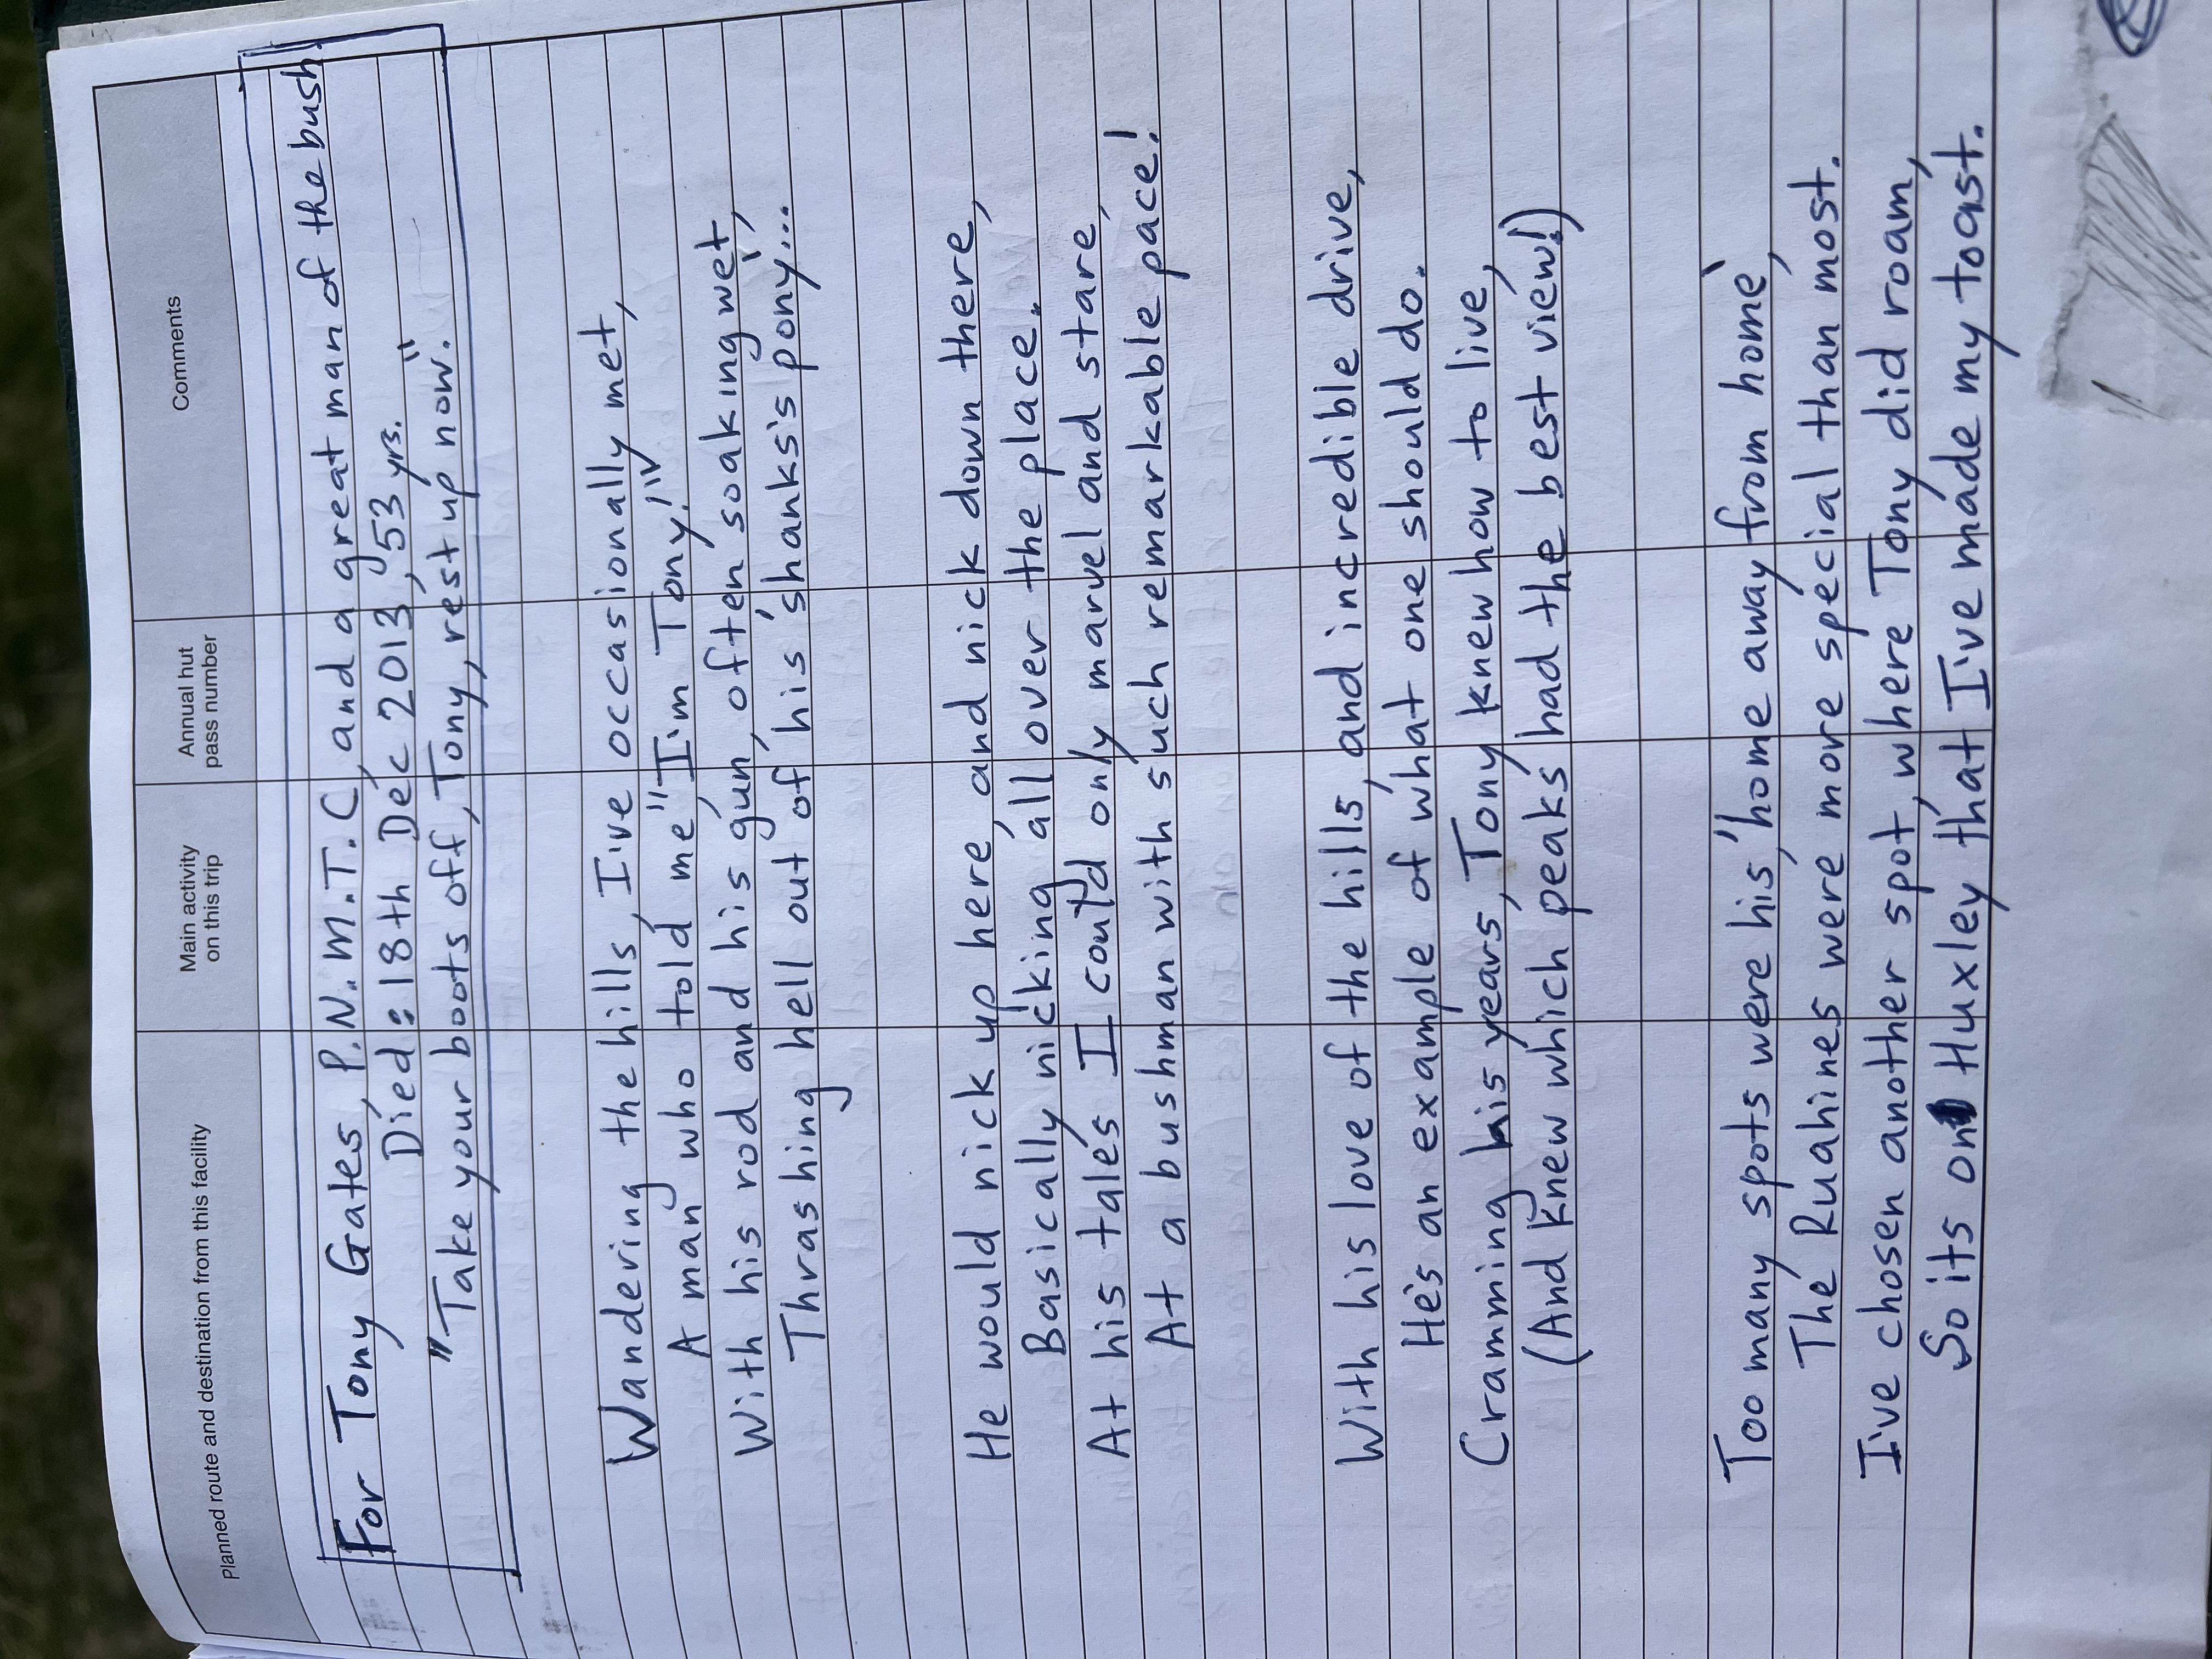 Planned route and destination from this facility
Main activity
on this trip
Annual hut
pass number
Comments
For Tony Gates, P.N.M.T.C, and a great man of the bush
Died: 18th Dec 2013, 53 yrs.
"Take your boots off, Tony, rest up now."
Wandering the hills, I've occasionally met,
A man who told me "I'm Tony!"
With his rod and his gun, often soaking wet,
Thrashing hell out of his 'shanks's pony'...
He would nick up here, and nick down there,
Basically nicking all over the place.
At his tales I could only marvel and stare,
At a bushman with such remarkable pace!
With his love of the hills, and incredible drive,
He's an example of what one should do.
Cramming his years, Tony knew how to live,
(And knew which peaks had the best view!)
Too many spots were his 'home away from home',
The Ruahines were more special than most.
I've chosen another spot, where Tony did roam,
So its on Huxley that I've made my toast.